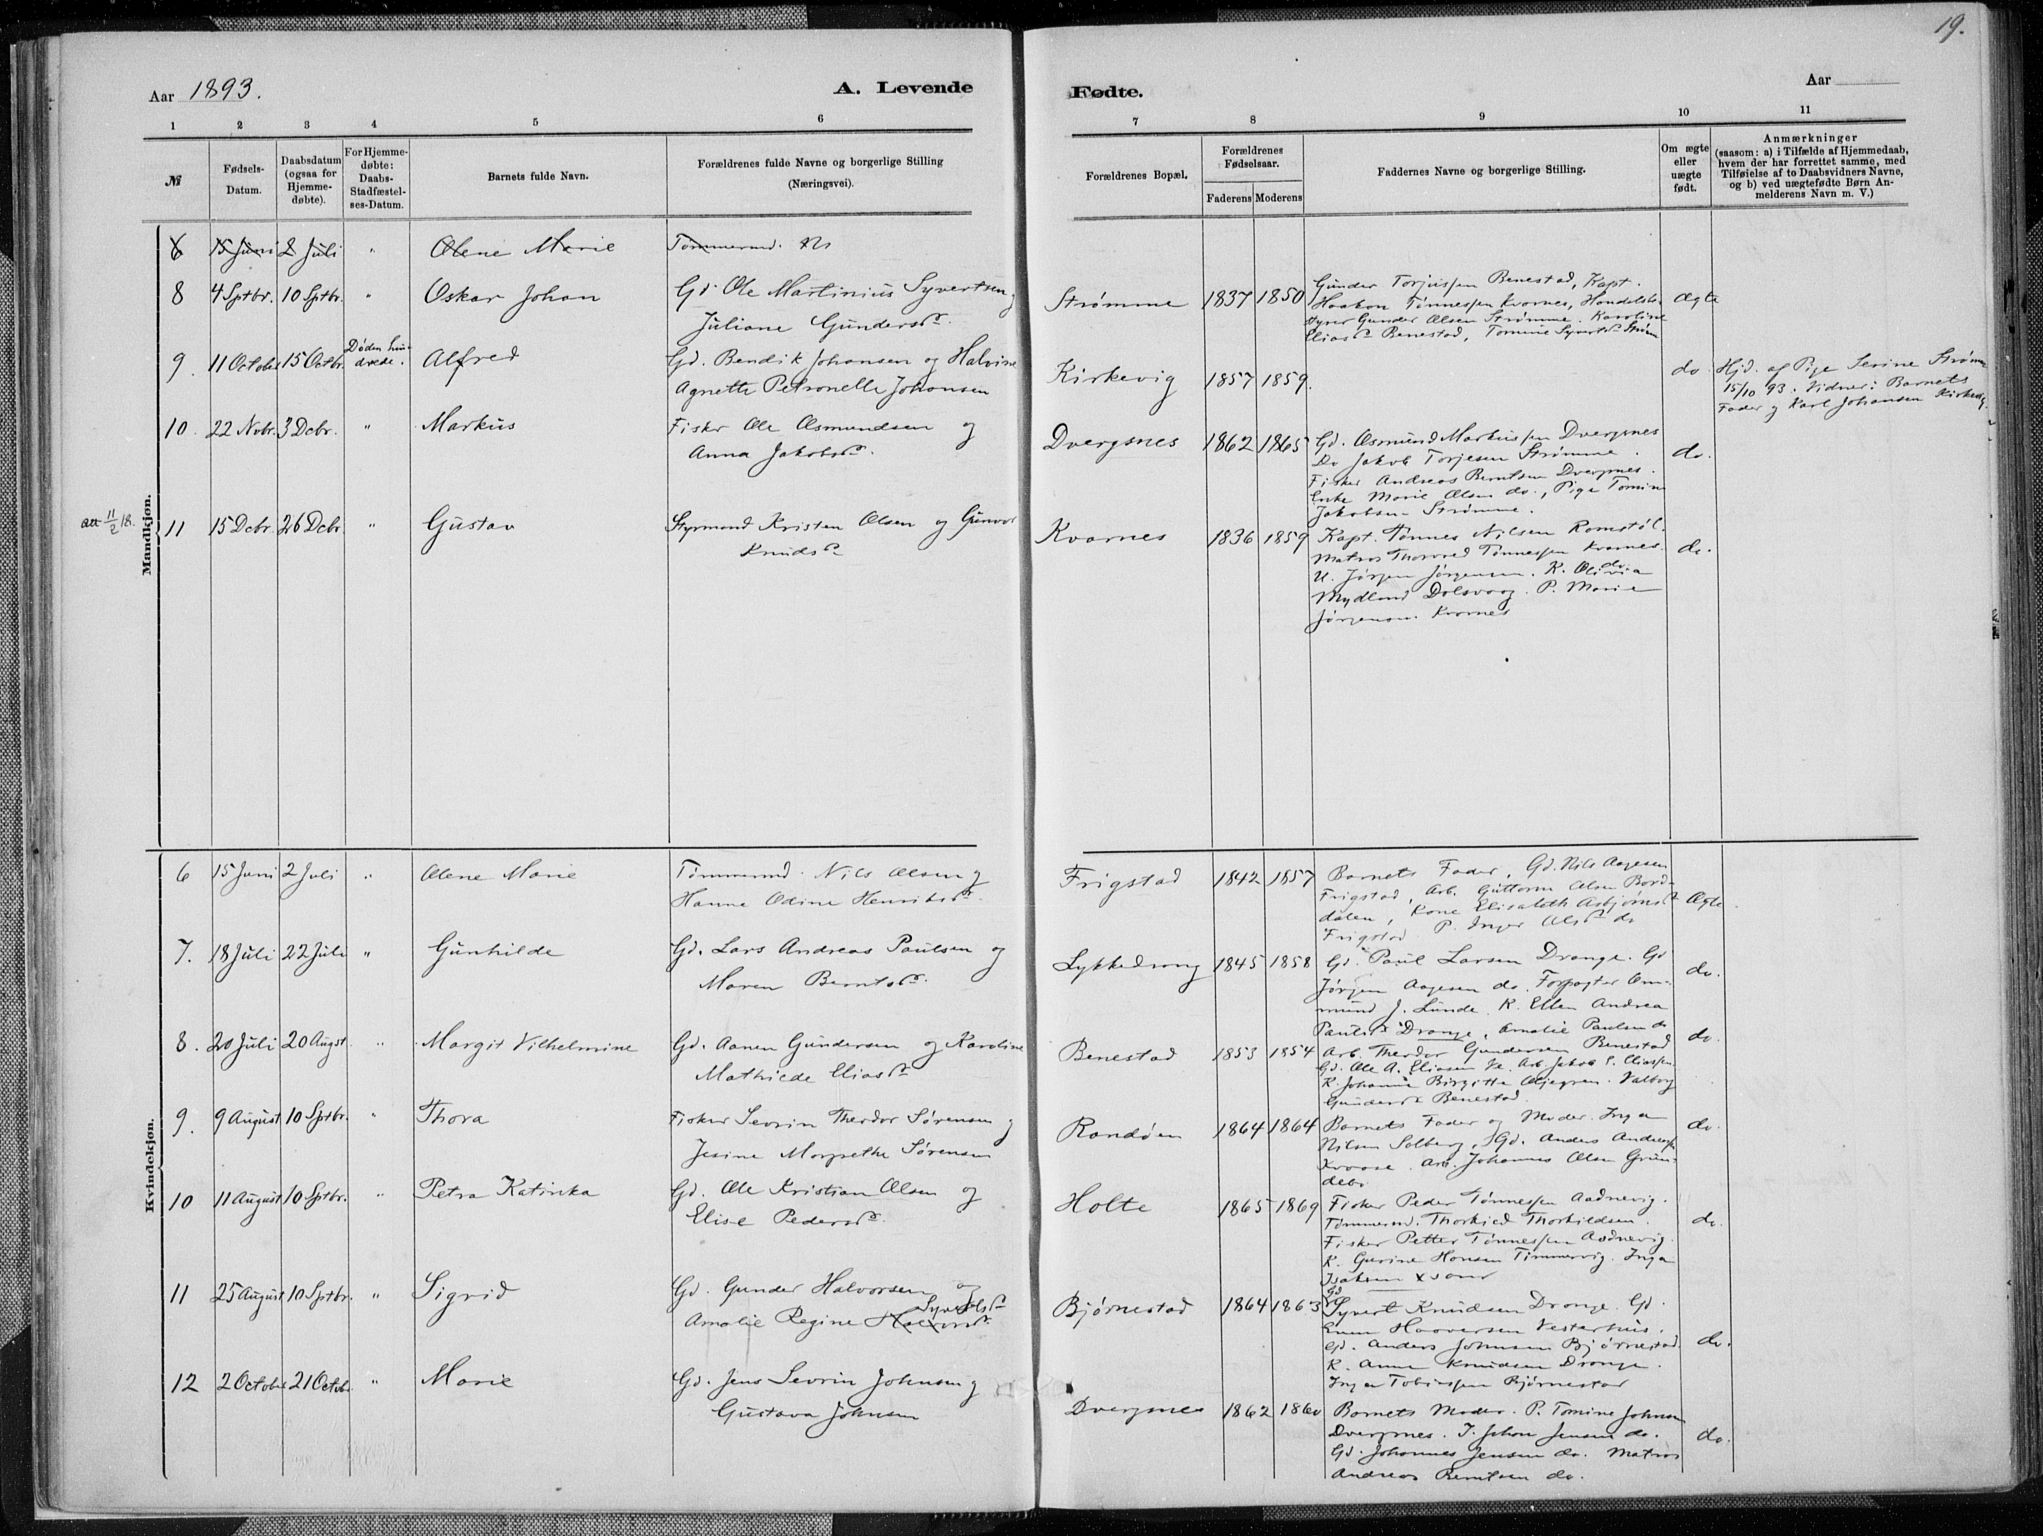 19.
Aar 1893.
A. Levende
Fødte.
Aar
1 2 3 4 5 6
7 8 9 10 11
№
Fødsels-
Datum.
Daabsdatum
(ogsaa for
Hjemme-
døbte).
For Hjemme-
døbte:
Daabs-
Stadfæstel-
ses-Datum.
Barnets fulde Navn.
Forældrenes fulde Navne og borgerlige Stilling
(Næringsvei).
Forældrenes Bopæl.
Forældrenes
Fødselsaar.
Faderens Moderens
Faddernes Navne og borgerlige Stilling.
Om ægte
eller
uægte
født.
Anmærkninger
(saasom: a) i Tilfælde af Hjemmedaab,
hvem der har forrettet samme, med
Tilføielse af to Daabsvidners Navne,
og b) ved uægtefødte Børn An-
melderens Navn m. V.)
Mandkjøn.
6 15 Juni 2 Juli " Olene Marie Tømmermd.
8 4 Sptbr. 10 Sptbr. " Oskar Johan Gd. Ole Martinius Syvertsen og
Juliane Gundersd.
Strømme 1837 1850
Gunder Torjussen Benestad, Kapt.
Haakon Tønnessen Kvarnes, Handelsbe-
styrer Gunder Olsen Strømme. Karoline
Eliasd. Benestad, Tomine Syvertsd. Strøm
Ægte
9 11 Octobr 15 Octbr. Døden
Alfred Gd. Bendik Johansen og Halvine
Agnette Petronelle Johansen
Kirkevig 1857 1859.
do.
Hjd. af Pige Serine Strømme
15/10 93. Vidner: Barnets
Fader og Karl Johansen Kirkevig.
10 22 Nvbr. 3 Debr. " Markus Fisker Ole Osmundsen og
Anna Jakobsd.
Dvergsnes 1862 1865
Gd. Osmund Markussen Dvergsnes
Do Jakob Torjesen Strømme.
Fisker Andreas Berntsen Dvergsnes.
Enke Marie Olsen do., Pige Tomine
Jakobsen Strømme.
do.
att 11/2 18.
11 15 Debr. 26 Debr. " Gustav Styrmand Kristen Olsen og Gunvor
Knudsd.
Kvarnes 1836 1859
Kapt. Tønnes Nilsen Romstøl.
Matros Thorvald Tønnessen Kvarnes.
U. Jørgen Jørgensen do. K. Olivia
Mydland Dolsvaag. P. Marie
Jørgensen. Kvarnes
do.
Kvindekjøn.
6 15 Juni 2 Juli " Olene Marie Tømmermd. Nils Olsen og
Hanne Odine Henriksd.
Frigstad 1842 1857
Barnets Fader, Gd. Nils Aagesen
Frigstad, Arb. Guttorm Olsen Bord-
dalen, Kone Elisabeth Asbjørnsd.
Frigstad. P. Inger Olsd. do
Ægte
7. 18 Juli 22 Juli " Gunhilde Gd. Lars Andreas Paulsen og
Maren Berntsd.
Lykkedrang 1845 1858
Gd. Paul Larsen Drange. Gd
Jørgen Aagesen do. Forpagter Om-
mund J. Lunde. K. Ellen Andrea
Paulsd. Drange, Amalie Paulsen do
do.
8. 20 Juli 20 Augst " Margit Vilhelmine Gd. Aanen Gundersen og Karoline
Mathilde Eliasd.
Benestad 1853 1854
Arb. Theodor Gundersen Benestad
Gd. Ole A. Eliasen Ve. Arb. Jakob E. Eliassen
K. Johanne Birgitte Øijegren. Valborg
Gundersd. Benestad.
do.
9. 9 August 10 Sptbr. " Thora Fisker Sevrin Theodor Sørensen og
Jesine Margrethe Sørensen
Randøen 1864 1864
Barnets Fader og Moder. Inga
Nilsen Solberg, Gd. Anders Anderss.
Kvaase. Arb. Johannes Olsen Grun-
debr
do.
10 11 August 10 Sptbr. " Petra Katinka Gd. Ole Kristian Olsen og
Elise Pedersd.
Holte 1865 1869
Fisker Peder Tønnessen Aadnevig.
Tømmermd. Thorkild Thorkildsen.
Fisker Petter Tønnessen Aadnevig.
K. Gurine Hansen Timmervig. Inga
Isaksen
do.
11 25 August 10 Sptbr. " Sigrid Gd. Gunder Halvorsen og
Amalie Regine Syvertsd.
Bjørnestad 1864 1863
Gd
Syvert Knudsen Drange. Gd.
Even Haaversen Vesterhus.
Gd. Anders Johnsen Bjørnestad.
K. Anne Knudsen Drange.
Inga Tobiassen Bjørnestad
do.
12 2 October 21 Octbr. " Marie Gd. Jens Sevrin Johnsen og
Gustava Johnsen
Dvergsnes 1862 1860
Barnets Moder. P. Tomine Johnsen
Dvergsnes. I. John Jensen do.
Gd. Johannes Jensen do. Matros
Andreas Berntsen do.
do.